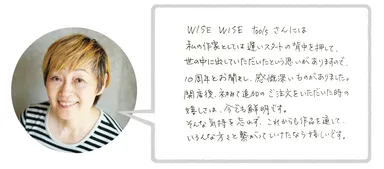 WISE WISE toolsさんには
私の作家としては遅いスタートの背中を押して、
世の中に出していただいたという思いがありますので、
10周年とお聞きし、感慨深いものがありました。
開店後、初めて追加のご注文をいただいた時の
嬉しさは、今でも鮮明です。
そんな気持を忘れず、これからも作品を通して、
いろんな方々と繋がっていけたなら嬉しいです。